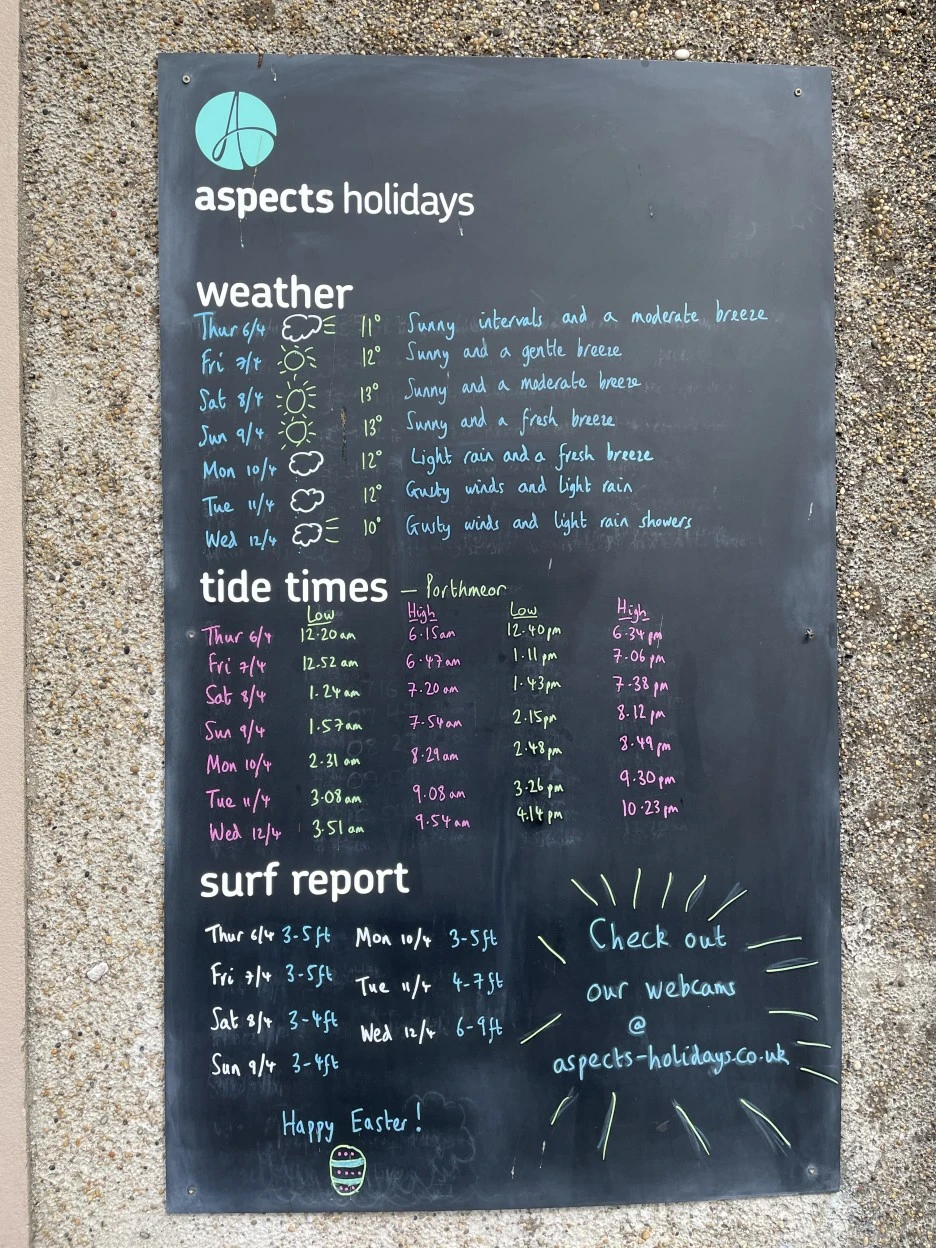 A
aspects holidays
weather
Thur 6/4 11° Sunny intervals and a moderate breeze
Fri 7/4 12° Sunny and a gentle breeze
Sat 8/4 13° Sunny and a moderate breeze
Sun 9/4 13° Sunny and a fresh breeze
Mon 10/4 12° Light rain and a fresh breeze
Tue 11/4 12° Gusty winds and light rain
Wed 12/4 10° Gusty winds and light rain showers
tide times — Porthmeor
Low High Low High
Thur 6/4 12.20am 6.15am 12.40pm 6.34pm
Fri 7/4 12.52am 6.47am 1.11pm 7.06pm
Sat 8/4 1.24am 7.20am 1.43pm 7.38pm
Sun 9/4 1.57am 7.54am 2.15pm 8.12pm
Mon 10/4 2.31am 8.29am 2.48pm 8.49pm
Tue 11/4 3.08am 9.08am 3.26pm 9.30pm
Wed 12/4 3.51am 9.54am 4.14pm 10.23pm
surf report
Thur 6/4 3-5ft Mon 10/4 3-5ft
Fri 7/4 3-5ft Tue 11/4 4-7ft
Sat 8/4 3-4ft Wed 12/4 6-9ft
Sun 9/4 3-4ft
Check out
our webcams
@
aspects-holidays.co.uk
Happy Easter!